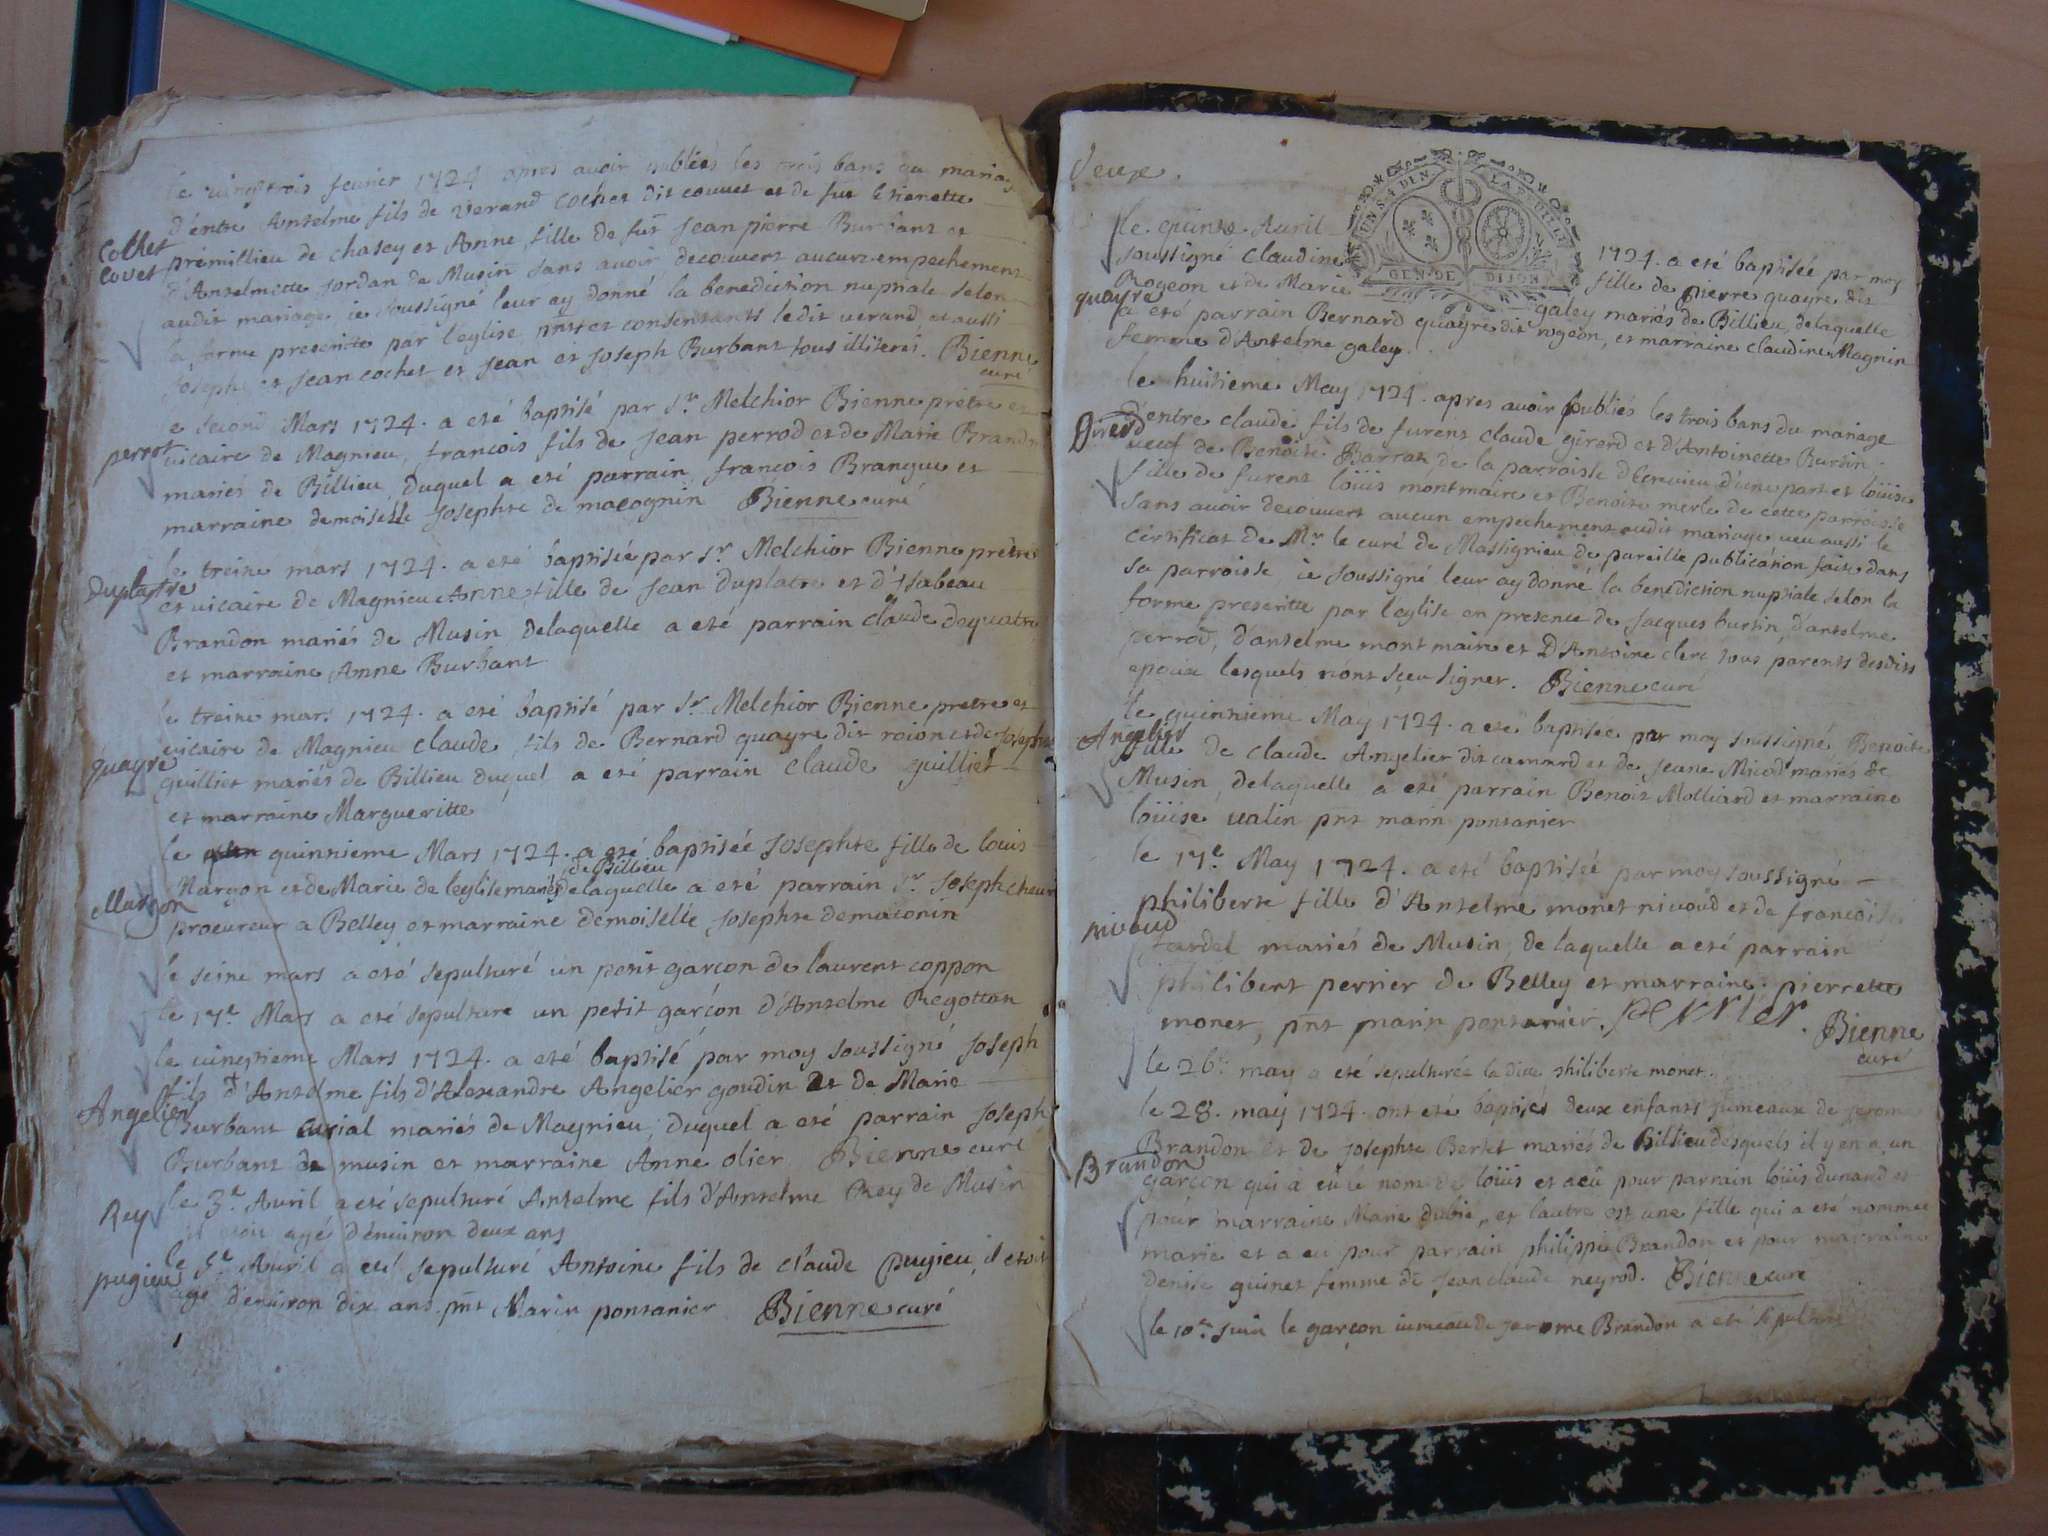 le vingt trois fevrier 1724 apres avoir publiés les trois bans du mariage
d'entre Anselme fils de verand cochet dit couvet et de fut Etienette
cochet
couvet
premillieu de chasey et Anne fille de fut Jean pierre Burbant et
d'Anselmette Jordan de Musin sans avoir decouvert aucun empechement
audit mariage ie soussigné leur ay donné la benediction nuptiale selon
la forme prescritte par l'eglise pnts et consentants ledit verand, et aussi
Joseph et Jean cochet et Jean et Joseph Burbant tous illiterés. Bienne
curé
le second Mars 1724. a eté baptisé par Sr. Melchior Bienne pretre et
perrot
vicaire de Magnieu, francois fils de Jean perrod et de Marie Brandon
mariés de Billieu, duquel a eté parrain francois Brangue et
marraine demoiselle Josephte de macognin Bienne curé
le treize mars 1724. a eté baptisée par Sr. Melchior Bienne pretre
Duplastre
et vicaire de Magnieu Anne fille de Jean duplatre et d'Isabeau
Brandon mariés de Musin delaquelle a eté parrain claude dequatre
et marraine Anne Burbant
le treize mars 1724. a eté baptisé par Sr. Melchior Bienne pretre et
quayre
vicaire de Magnieu claude, fils de Bernard quayre dit roion et de Josephte
guilliet mariés de Billieu duquel a eté parrain claude guilliet
et marraine Margueritte
le quinzieme Mars 1724. a eté baptisée Josephte fille de louis
de Billieu
Margon
Margon et de Marie de leglise mariés delaquelle a eté parrain Sr. Joseph
procureur a Belley et marraine demoiselle Josephte demaconin
le seize mars a eté sepulturé un petit garcon de laurent coppon
le 17e. Mars a eté sepulture un petit garçon d'Anselme Regottaz
le vingtieme Mars 1724. a eté baptisé par moy soussigné Joseph
fils d'Anselme fils d'Alexandre Angelier goudin et de Marie
Angelier
Burbant curial mariés de Magnieu, duquel a eté parrain Joseph
Burbant de musin et marraine Anne olier Bienne curé
Rey
le 3e. Avril a eté sepulturé Anselme fils d'Anselme Rey de Musin
il etoit agé d'environ deux ans
pugieu
le 5e. Avril a eté sepulturé Antoine fils de claude Pugieu, il etoit
agé d'environ dix ans. pnt Marin pontanier Bienne curé
Veuxe.
UN S. 4 DEN. LA FEUILLE
GEN. DE DIJON
le quinze Avril 1724. a eté baptisée par moy
soussigné claudine fille de pierre quayre dit
quayre
Rogeon et de Marie galey mariés de Billieu, delaquelle
a eté parrain Bernard quayre dit rogeon, et marraine claudine Magnin
femme d'Anselme galey.
le huitieme May 1724. apres avoir publiés les trois bans du mariage
Girerd
d'entre claude fils de furent claude girerd et d'Antoinette Burdin
veuf de Benoite Barraz de la parroisse d'Ecrivieu d'une part et loüise
fille de furent loüis montmaire et Benoite merle de cette parroisse
sans avoir decouvert aucun empechement audit mariage veu aussi le
certificat de Mr. le curé de Massignieu de pareille publication faite dans
sa parroisse, ie soussigné leur ay donné la benediction nuptiale selon la
forme prescritte par l'eglise en presence de Jacques burtin, d'anselme
perrod, d'anselme montmaire et D'Antoine clerc tous parents desdits
epoux lesquels n'ont sçeu signer. Bienne curé
le quinzieme May 1724. a eté baptisée par moy soussigné Benoite
Angelier
fille de claude Angelier dit camard et de Jeane Micod mariés de
Musin, delaquelle a eté parrain Benoit Molliard et marraine
loüise valin pnt marin pontanier
le 17e. May 1724. a eté baptisée par moy soussigné
philiberte fille d'Anselme monet nivoud et de francoise
nivoud
tardel mariés de Musin, de laquelle a eté parrain
philibert perrier de Belley et marraine pierrette
monet, pnt marin pontanier. perrier. Bienne
curé
le 26. may a eté sepulturée la dite philiberte monet.
le 28. may 1724. ont eté baptisés deux enfants jumeaux de Jerome
Brandon et de Josephte Bertet mariés de Billieu desquels il y en a un
Brandon
garcon qui à eü le nom de loüis et a eü pour parrain loüis dunand et
pour marraine Marie dubié, et lautre est une fille qui a eté nommée
marie et a eu pour parrain philippe Brandon et pour marraine
denise guinet femme de Jean claude neyrod. Bienne curé
le 10e. Juin le garçon iumeau de Jerome Brandon a eté sepulturé